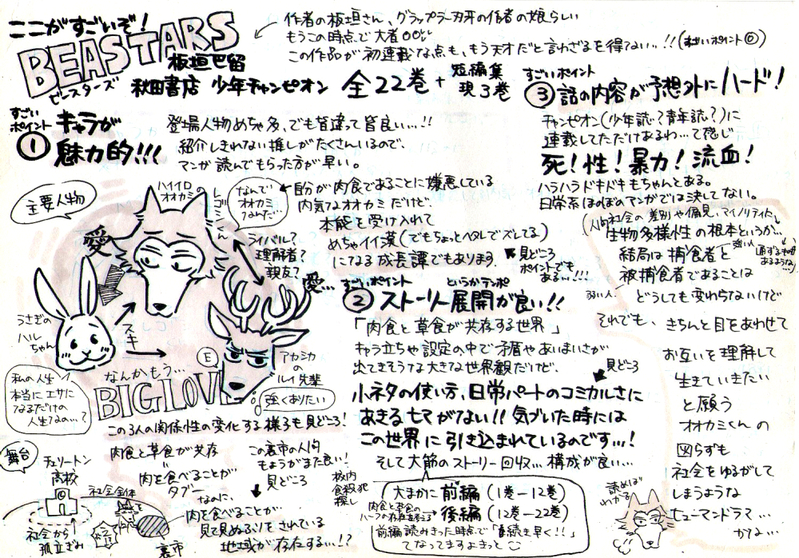 ここがすごいぞ！
BEASTARS
ビースターズ
板垣巴留
秋田書店 少年チャンピオン 全22巻＋短編集現3巻
作者の板垣さん、グラップラー刃牙の作者の娘らしい
もうこの時点で大者
この作品が初連載な点も、もう天才だと言わざるを得ない…!!（すごいポイント⓪）
すごいポイント
① キャラが
魅力的!!!
登場人物めちゃ多、でも皆違って皆良い…!!
紹介しきれない推しがたくさんいるので、
マンガ読んでもらった方が早い。
主要人物
ハイイロオオカミの
レゴシくん
なんで
オオカミ
なんだ…
← 自分が肉食であることに嫌悪している
内気なオオカミだけど、
本能を受け入れて
めちゃイイ漢（でもちょっとヘタレでズレてる）
になる成長譚でもあります。
見どころ
ポイントでも
ある…!!!
愛
ライバル？
理解者？
親友？
愛…
うさぎの
ハルちゃん
スキ
アカシカの
ルイ先輩
強くありたい
私の人生
本当にエサに
なるだけの
人生なの…？
なんかもう…
BIG LOVE
この3人の関係性の変化する様子も見どころ！
舞台
チェリートン
高校
社会全体
社会から
孤立ぎみ
裏市
肉食と草食が共存
肉を食べることが
タブー
なのに、
肉を食べることが
見て見ぬふりをされている
地域が存在する…!?
この裏市の人間
もようがまた良い！
見どころ
すごいポイント
② ストーリー展開が良い!!
というかテンポ
「肉食と草食が共存する世界」
キャラ立ちや設定の中で矛盾やあいまいさが
出てきそうな大きな世界観だけど、
見どころ
小ネタの使い方、日常パートのコミカルさに
あきるヒマがない!! 気づいた時には
この世界に引き込まれているのです…！
そして大筋のストーリー回収…構成が良い…
校内
食殺犯
探し
大まかに前編（1巻ー12巻）
肉食と草食の
ハーフの存在を巡る
後編（12巻ー22巻）
前編読みきった時点で「続き早く!!」
てなってますよきっと
すごいポイント
③ 話の内容が予想外にハード！
チャンピオン（少年誌？青年誌？）に
連載してただけあるわ…て感じ
死！性！暴力！流血！
ハラハラドキドキもちゃんとある。
日常系ほのぼのマンガでは決してない。
人間社会の差別や偏見、マイノリティとか
通ずるものも
あるような…
生物多様性の根本というか…
強い人
結局は捕食者と
被捕食者であることは
弱い人
どうしても変わらないけど
それでも、きちんと目をあわせて
お互いを理解して
生きていきたい
と願う
オオカミくんの
図らずも
社会をゆるがして
しまうような
ヒューマンドラマ…
かな…
読めば
わかる